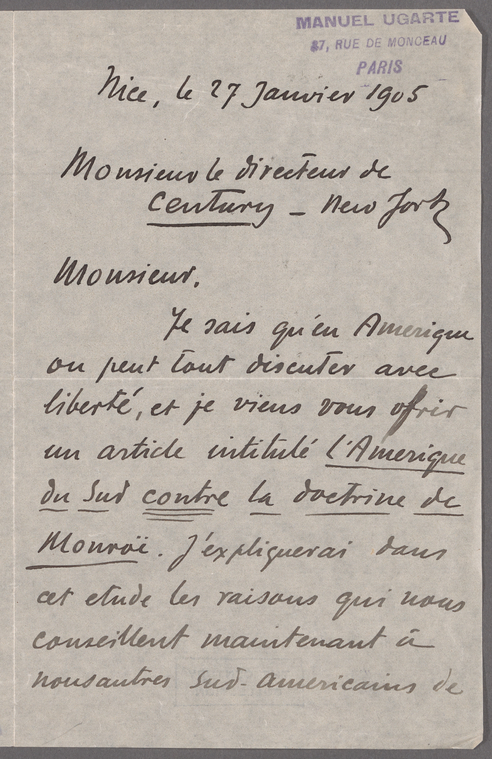 MANUEL UGARTE
87, RUE DE MONCEAU
PARIS
Nice, le 27 Janvier 1905
Monsieur le directeur de
Century - New York
Monsieur.
Je sais qu'en Amerique
on peut tout discuter avec
liberté, et je viens vous ofrir
un article intitulé l'Amerique
du Sud contre la doctrine de
Monroë. J'expliquerai dans
cet etude les raisons qui nous
conseillent maintenant à
nousautres Sud-Americains de